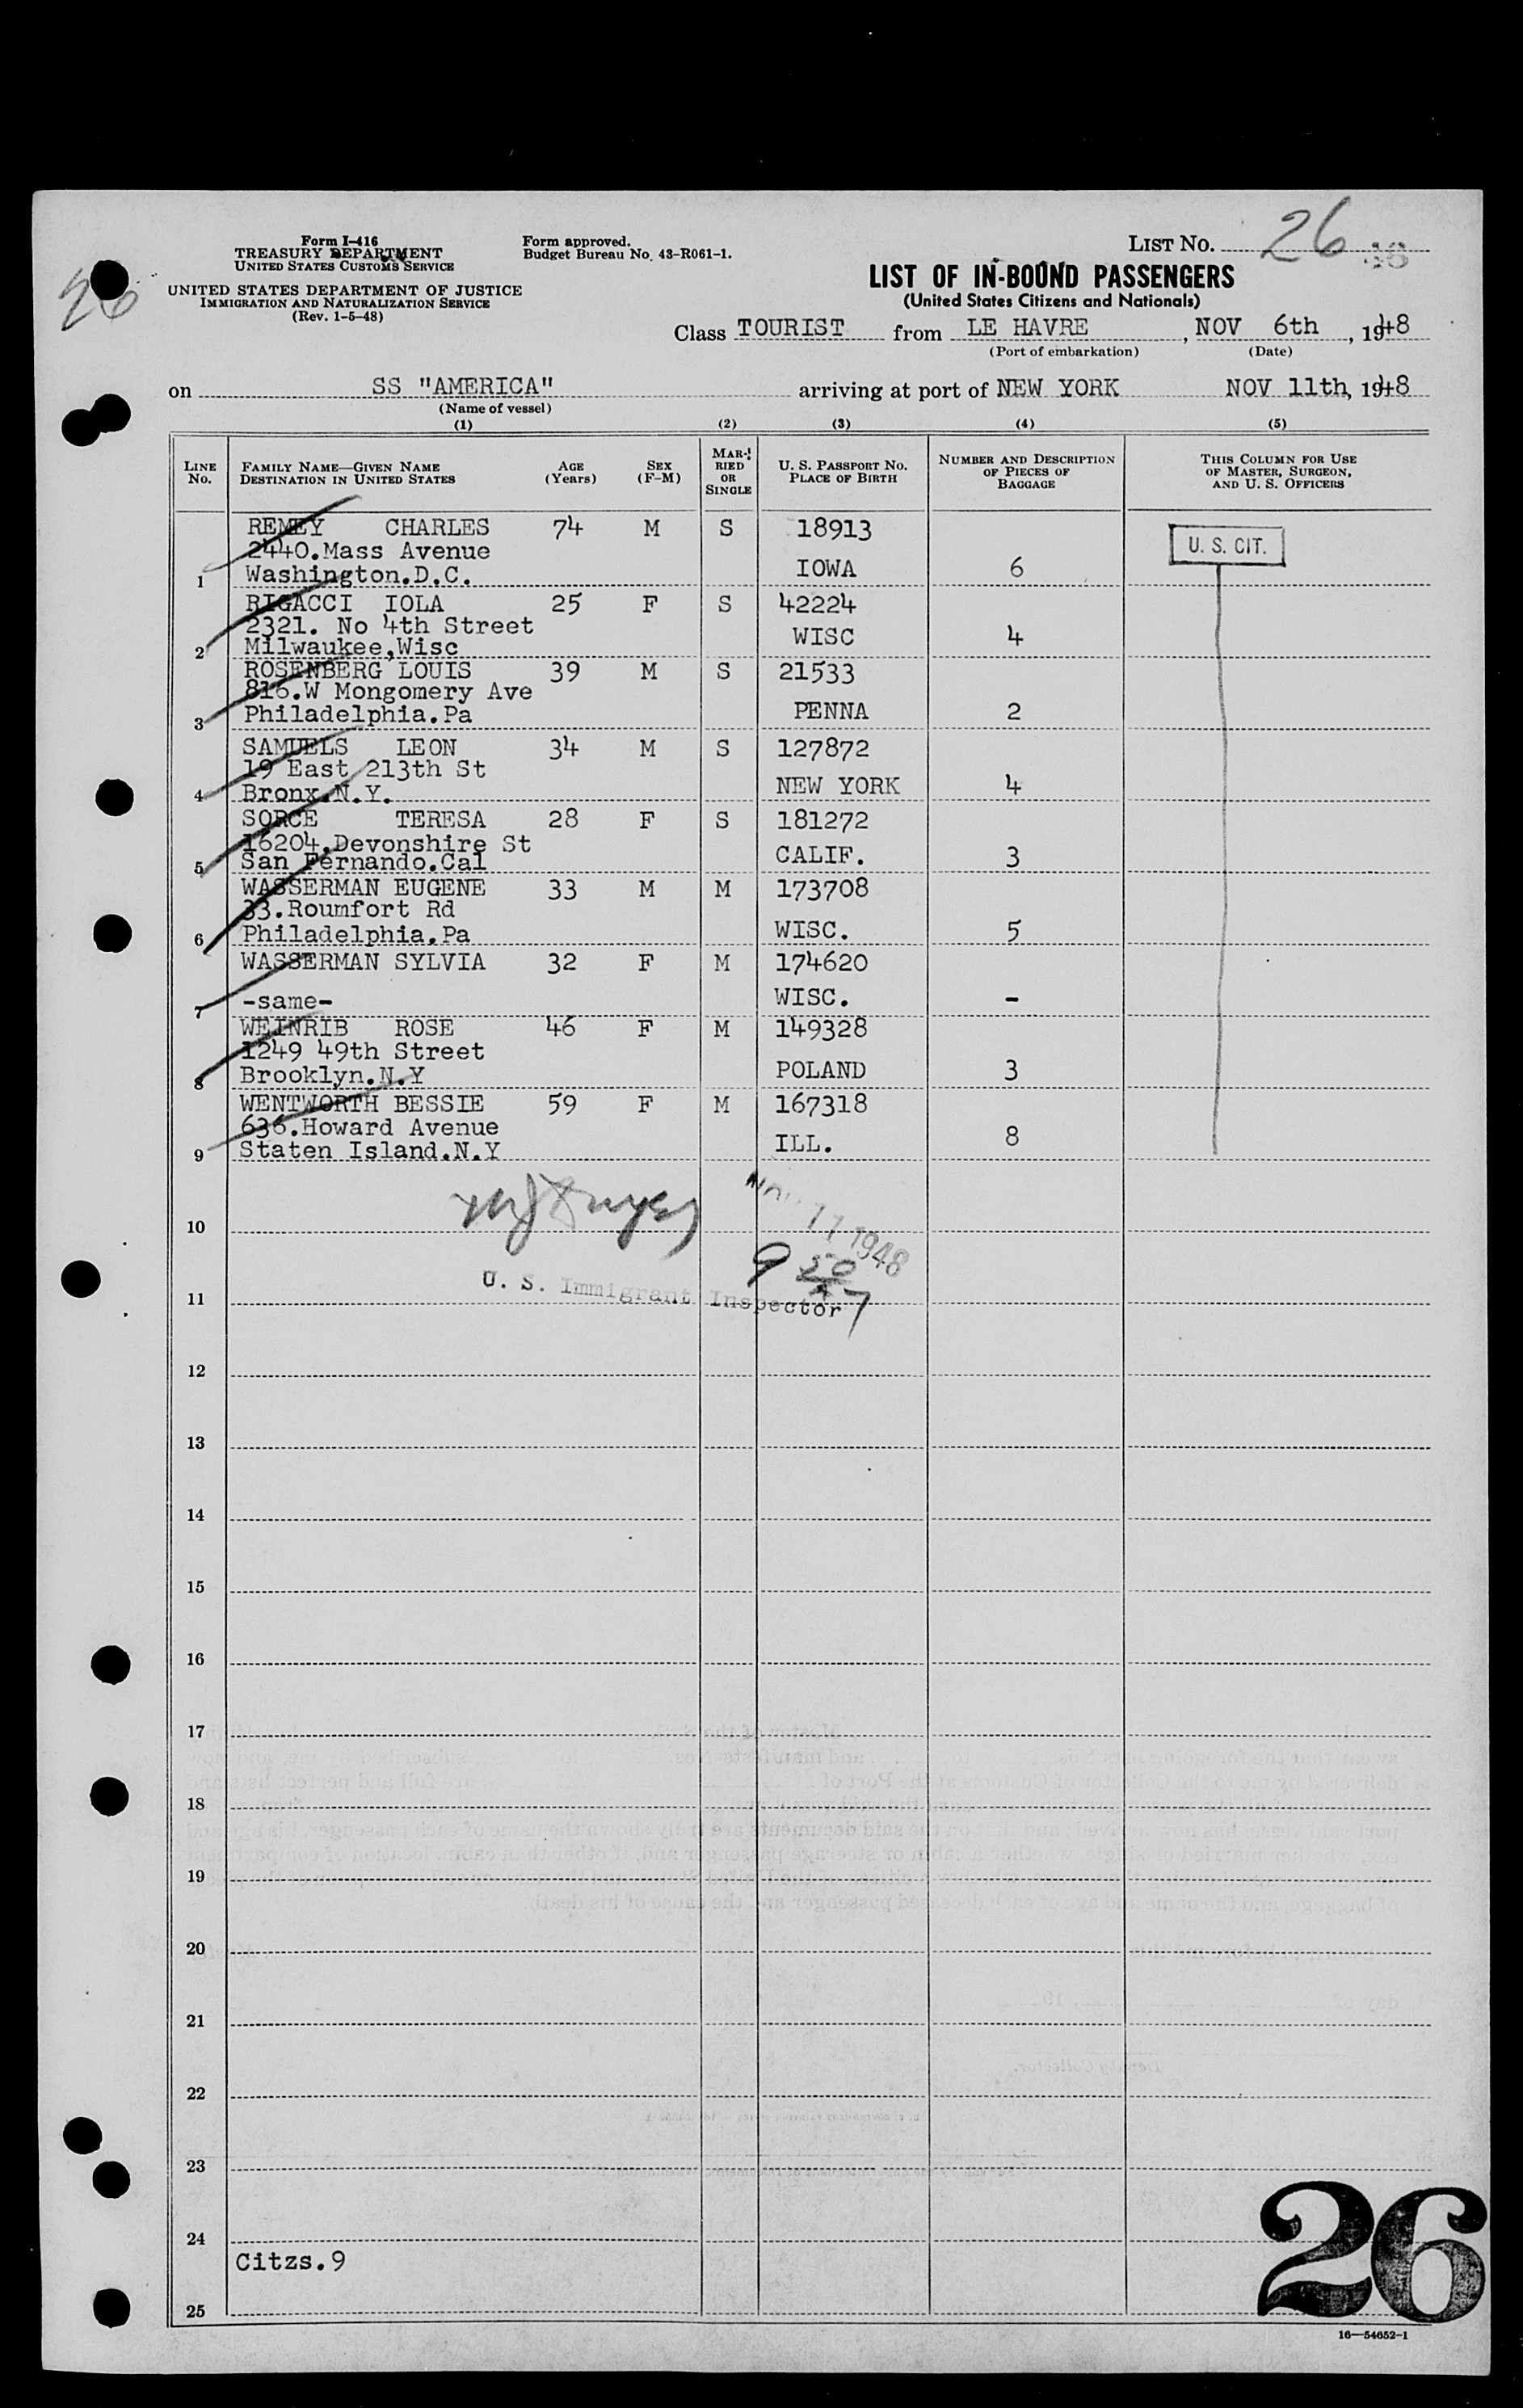 26
Form I-416
TREASURY DEPARTMENT
UNITED STATES CUSTOMS SERVICE
UNITED STATES DEPARTMENT OF JUSTICE
IMMIGRATION AND NATURALIZATION SERVICE
(Rev. 1-5-48)
Form approved.
Budget Bureau No. 43-R061-1.
LIST No. 26
LIST OF IN-BOUND PASSENGERS
(United States Citizens and Nationals)
Class TOURIST from LE HAVRE, NOV 6th, 1948
(Port of embarkation) (Date)
on SS "AMERICA" arriving at port of NEW YORK NOV 11th, 1948
(Name of vessel)
(1) (2) (3) (4) (5)
LINE No. FAMILY NAME—GIVEN NAME DESTINATION IN UNITED STATES AGE (Years) SEX (F-M) MARRIED OR SINGLE U. S. PASSPORT No. PLACE OF BIRTH NUMBER AND DESCRIPTION OF PIECES OF BAGGAGE THIS COLUMN FOR USE OF MASTER, SURGEON, AND U. S. OFFICERS
REMEY CHARLES 74 M S 18913
2440.Mass Avenue U. S. CIT.
1 Washington.D.C. IOWA 6
RIGACCI IOLA 25 F S 42224
2321. No 4th Street
2 Milwaukee,Wisc WISC 4
ROSENBERG LOUIS 39 M S 21533
816.W Mongomery Ave
3 Philadelphia.Pa PENNA 2
SAMUELS LEON 34 M S 127872
19 East 213th St
4 Bronx.N.Y. NEW YORK 4
SORCE TERESA 28 F S 181272
16204.Devonshire St
5 San Fernando.Cal CALIF. 3
WASSERMAN EUGENE 33 M M 173708
33.Roumfort Rd
6 Philadelphia.Pa WISC. 5
WASSERMAN SYLVIA 32 F M 174620
7 -same- WISC. -
WEINRIB ROSE 46 F M 149328
1249 49th Street
8 Brooklyn.N.Y POLAND 3
WENTWORTH BESSIE 59 F M 167318
636.Howard Avenue
9 Staten Island.N.Y ILL. 8
10
NOV 11 1948
U. S. Immigrant Inspector
11
12
13
14
15
16
17
18
19
20
21
22
23
24
Citzs.9
25
26
16—54652-1